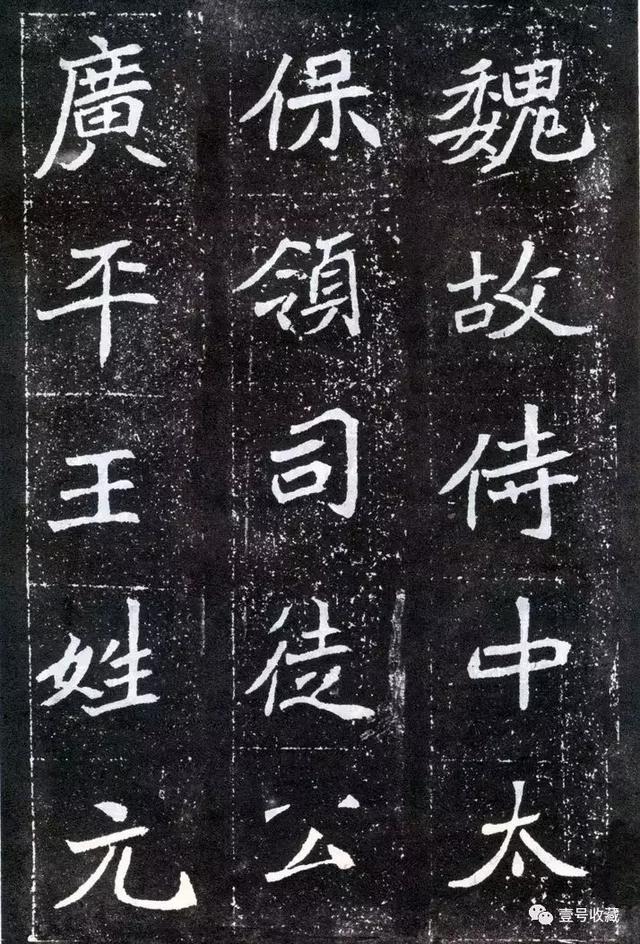 魏故侍中太
保領司徒公
廣平王姓元
壹号收藏